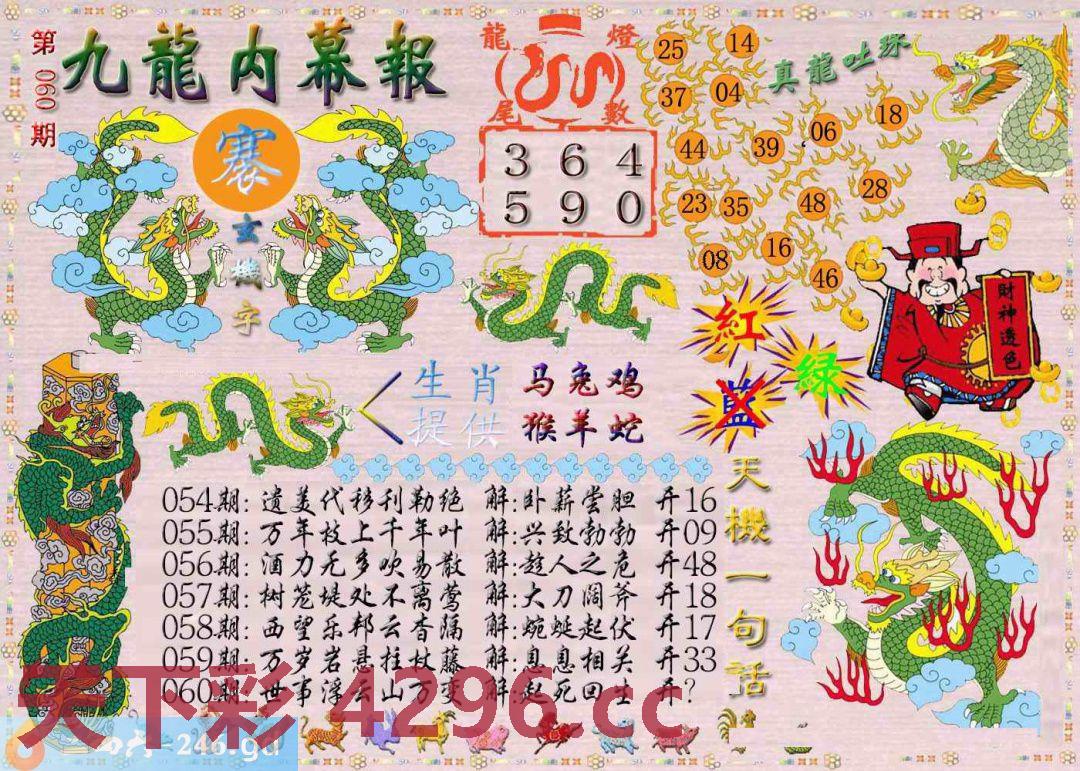 第060期
九龍内幕報
寒
玄機字
龍燈
尾數
3 6 4
5 9 0
真龍吐珠
25 14
37 04
44 39 06 18
23 35 48 28
08 16 46
財神透色
紅
藍
绿
生肖
提供
马兔鸡
猴羊蛇
天機一句話
054期:遗美代移刊勒绝 解:卧薪尝胆 开16
055期:万年枝上千年叶 解:兴致勃勃 开09
056期:酒力无多吹易散 解:趁人之危 开48
057期:树笼堤处不离莺 解:大刀阔斧 开18
058期:西望乐邦云杳隔 解:蜿蜒起伏 开17
059期:万岁岩悬拄杖藤 解:息息相关 开33
060期:世事浮云山万变 解:起死回生 开?
天下彩 4296.cc
246.gd